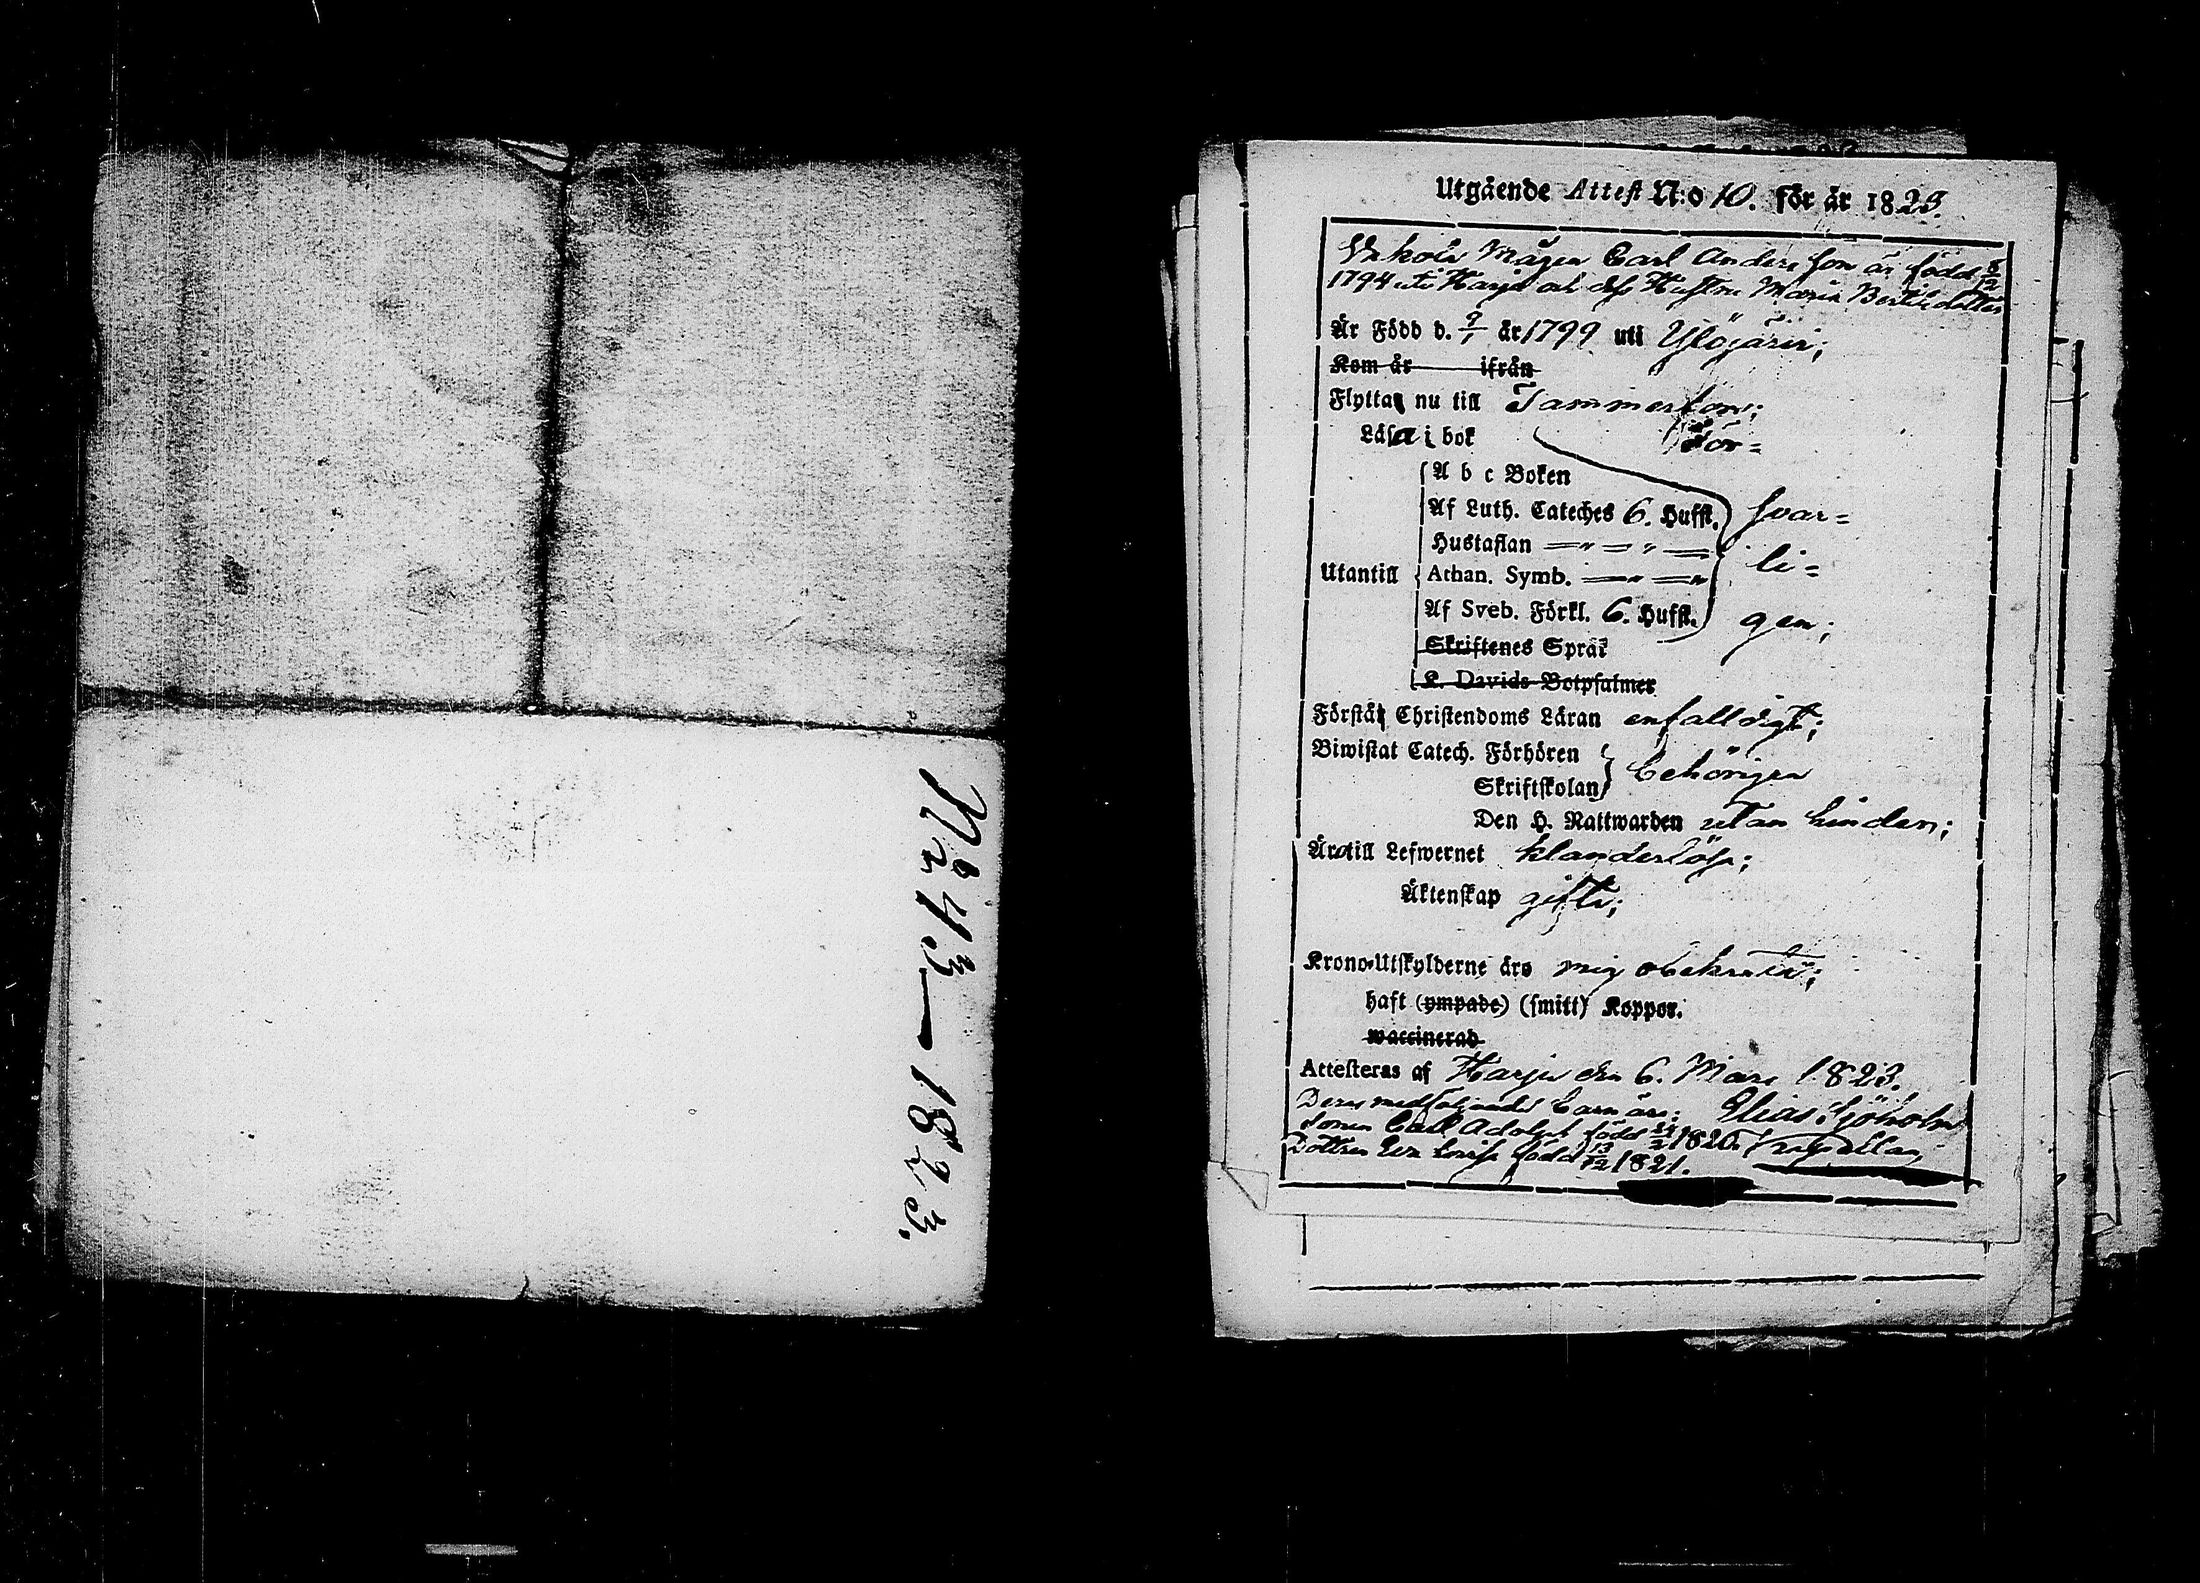 No 43 — 1823.
Utgående Attest N:o 10. för år 1823.
Mågen Carl Anders son är född 8/12
1794 uti Harju och dess Hustru Maria Bertilsdotter
Är Född d. 9/1 år 1799 uti Ylöjärvi;
Kom år ifrån
Flytta nu till Tammerfors;
Läsa i bok för=
A b c Boken
Af Luth. Cateches 6. Hufst. svar=
Hustaflan
li=
Utantill Athan. Symb.
Af Sveb. Förkl. 6. Hufst. gen;
Skriftenes Språk
K. Davids Botpsalmer
Förstå Christendoms Läran enfalldigt;
Biwistat Catech. Förhören
behörigen
Skriftskolan
Den H. Nattwarden utan hinder;
Äro till Lefwernet klanderlöse;
Äktenskap gifte;
Krono-Utskylderne äro mig obekanta;
haft (ympade) (smitt) Koppor.
waccinerad
Attesteras af Harju den 6. Mars 1823.
Deras medföljande barn äro: Elias Sjöholm
Sonen Carl Adolph född 1820. Kapellan
Dottren Eva Lovisa född 13/12 1821.